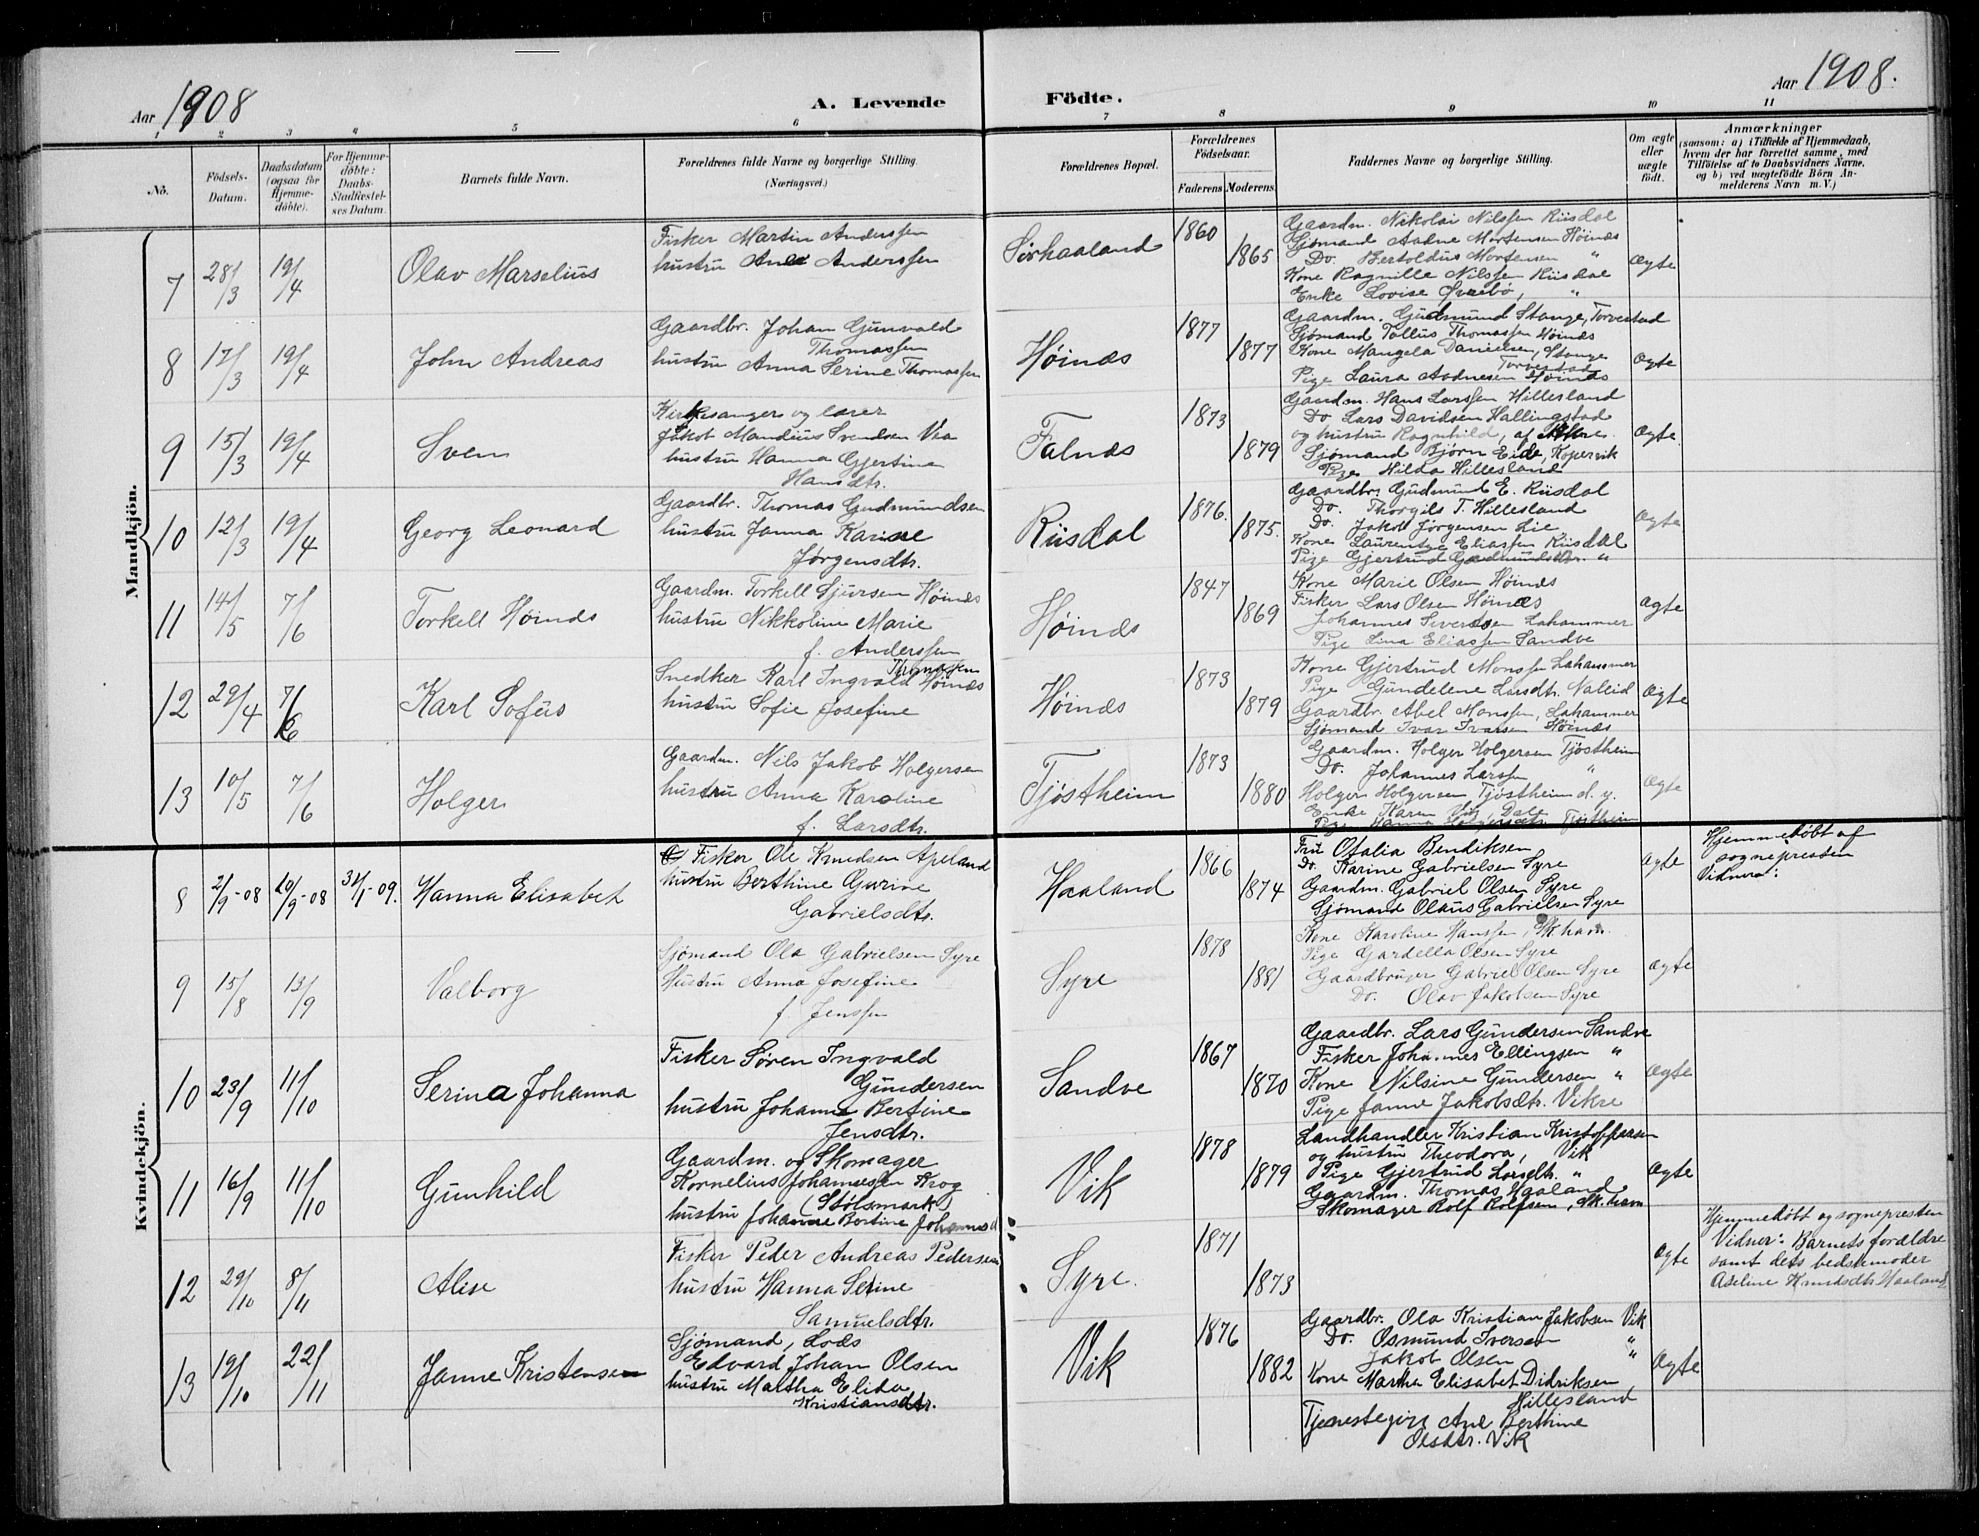 Aar 1908
A. Levende
Födte.
Aar 1908.
1 2 3 4 5 6 7 8 9 10 11
No.
Födsels-Datum.
Daabsdatum (ogsaa for Hjemme-döbte).
For Hjemme-döbte: Daabs-Stadfæstel-ses Datum.
Barnets fulde Navn.
Forældrenes fulde Navne og borgerlige Stilling. (Næringsvei.)
Forældrenes Bopæl.
Forældrenes Födselsaar.
Faderens
Moderens.
Faddernes Navne og borgerlig Stilling.
Om ægte eller uægte födt.
Anmærkninger
(saasom: a) i Tilfælde af Hjemmedaab,
hvem der har forrettet samme, med
Tilföielse af to Daabsvidners Navne,
og b) ved uægtefödte Börn An-
melderens Navn m. V.)
Mandkjön.
7 28/3 19/4 Olav Marselius
Fisker Martin Anderssen
hustru Ane Anderssen
Sørhaaland 1860 1865
Gaardm. Nikolai Nilssen Riisdal
Sjømand Aadne Mortensen Høinæs
Do. Bertoldus Mortensen "
Kone Ragnille Nilssen Riisdal
Enke Lovise Øvrebø, "
Ægte
8 17/3 19/4 John Andreas
Gaardbr. Johan Gunvald
Thomassen
hustru Anna Serine Thomassen
Høinæs 1877 1877
Gaardm. Gudmund Stange, Torvestad
Sjømand Tollus Thomassen Høinæs
Kone Mangela Danielsen, Stange
Torvestad
Pige Laura Aadnesen Høinæs
Ægte
9 15/3 19/4 Sven
Kirkesanger og lærer
Jakob Mandius Svendsen Vea
hustru Hanna Gjertine
Hansdtr.
Falnæs 1873 1879
Gaardm. Hans Larssen Hillesland
Do Lars Davidsen Hallingstad
og hustru Ragnhild, af
Sjømand Bjørn Eide, Kopervik
Pige Hilda Hillesland
Ægte.
10 12/3 19/4 Georg Leonard
Gaardbr. Thomas Gudmundsen
hustru Janna Karine
Jørgensdtr.
Riisdal 1876. 1875.
Gaardbr. Gudmund E. Riisdal
Do. Thorgils T. Hillesland
Do. Jakob Jørgensen Lie
Kone Laurentze Eliassen Riisdal
Pige Gjertrud Gudmundsdtr. "
Ægte
11 14/5 7/6 Torkell Høinæs
Gaardm. Torkell Sjursen Høinæs
hustru Nikkoline Marie
f. Anderssen
Høinæs 1847 1869
Kone Marie Olsen Høinæs
Fisker Lars Olsen Høinæs
Johannes Sivertsen Lahammer
Pige Lina Eliassen Sandve
Ægte
12 29/4 7/6 Karl Sofus
Snedker Karl Ingvald Thomassen
Høinæs
hustru Sofie Josefine
Høinæs 1873 1879
Kone Gjertrud Monssen Lahammer
Pige Gundelene Larsdtr. Naleid
Gaardbr. Abel Monssen, Lahammer
Sjømand Ivar Ivarsen Høinæs
Ægte
13 10/5 7/6 Holger
Gaardm. Nils Jakob Holgersen
hustru Anna Karoline
f. Larsdtr.
Tjøstheim 1873 1880
Gaardm. Holger Holgersen Tjøstheim
Do. Johannes Larssen "
Holger Holgersen Tjøstheim d. y.
Enke Karen Dale
Pige Hanna Tjøstheim
Ægte
Kvindekjön.
8 2/9-08 20/9-08 31/1-09. Hanna Elisabet
Fisker Ole Knudsen Apeland
hustru Berthine Gurine
Gabrielsdtr.
Haaland 1866 1874
Fru Otalia Bendiksen
Do. Karine Gabrielsen Syre
Gaardm. Gabriel Olsen Syre
Sjømand Olaus Gabrielsen Syre
Ægte
Hjemmedøbt af
sognepresten
Vidner:
9 15/8 13/9 Valborg
Sjømand Ola Gabrielsen Syre
Hustru Anna Josefine
f. Jenssen
Syre 1878 1881
Kone Karoline Hanssen, Sk.havn.
Pige Gardella Olsen Syre
Gaardbruger Gabriel Olsen Syre
Do. Olav Jakobsen Syre
Ægte
10 23/9 11/10 Serina Johanna
Fisker Søren Ingvald
Gundersen
hustru Johanna Bertine
Jensdtr.
Sandve 1867 1870
Gaardbr. Lars Gundersen Sandve
Fisker Johannes Ellingsen "
Kone Nilsine Gundersen "
Pige Janne Jakobsdtr. Vikre
Ægte
11 16/9 11/10 Gunhild
Gaardm. og Skomager
Kornelius Johannesen Krog
(Stolsmark)
hustru Johanne Bertine Johannesd
Vik 1878 1879
Landhandler Kristian Kristoffersen
og hustru Theodora, Vik
Pige Gjertrud Larsdtr. "
Gaardm. Thomas Haaland
Skomager Rolf Rolfsen, Sk.havn
Ægte
12 29/10 8/11 Alise
Fisker Peder Andreas Pedersen
hustru Hanna Serine
Samuelsdtr.
Syre. 1871 1873
Ægte
Hjemmedøbt og sognepresten
Vidner: Barnets forældre
samt dets bedstemoder
Aseline Knudsdtr. Haaland
13 19/10 22/11 Janne Kristensen
Sjømand, Lods
Edvard Johan Olsen
hustru Maltha Elida
Kristiansdtr.
Vik 1876 1882
Gaardbr. Ola Kristian Jakobsen Vik
Do. Osmund Iversen "
Jakob Olsen "
Kone Martha Elisabet Didriksen
Hillesland
Tjenestegirl Ane Berthine
Olsdtr. Vik
Ægte